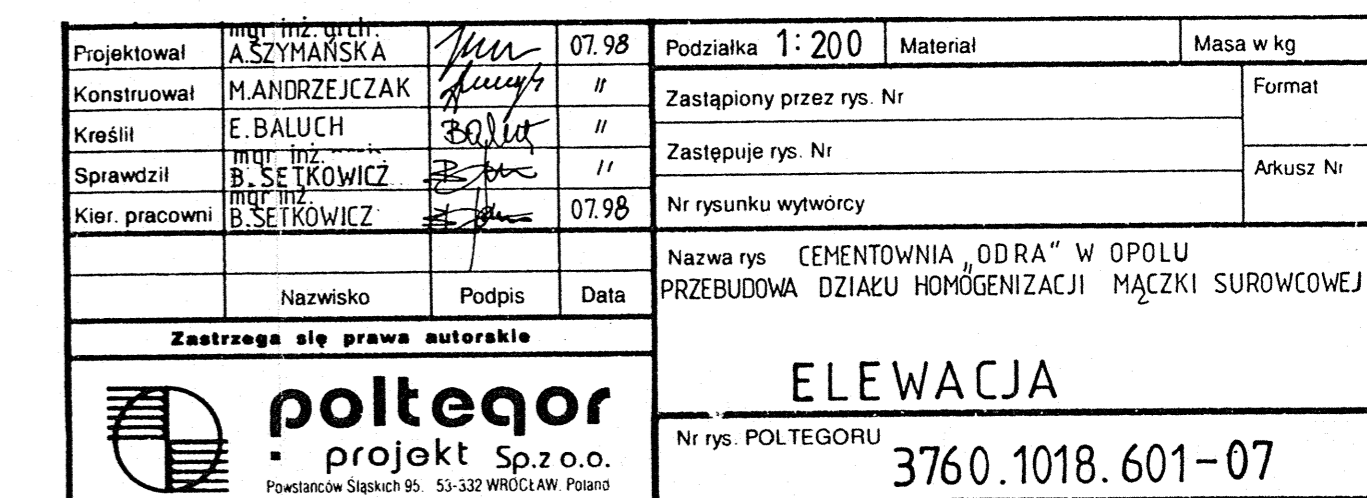 Projektował mgr inż. arch. A.SZYMAŃSKA 07.98
Konstruował M.ANDRZEJCZAK "
Kreślił E.BALUCH Baluch "
Sprawdził mgr inż. B.SETKOWICZ "
Kier. pracowni mgr inż. B.SETKOWICZ 07.98
Nazwisko Podpis Data
Zastrzega się prawa autorskie
poltegor
projekt Sp.z o.o.
Powstańców Śląskich 95. 53-332 WROCŁAW. Poland
Podziałka 1:200 Materiał Masa w kg
Zastąpiony przez rys. Nr Format
Zastępuje rys. Nr Arkusz Nr
Nr rysunku wytwórcy
Nazwa rys CEMENTOWNIA „ODRA" W OPOLU
PRZEBUDOWA DZIAŁU HOMOGENIZACJI MĄCZKI SUROWCOWEJ
ELEWACJA
Nr rys. POLTEGORU 3760.1018.601-07